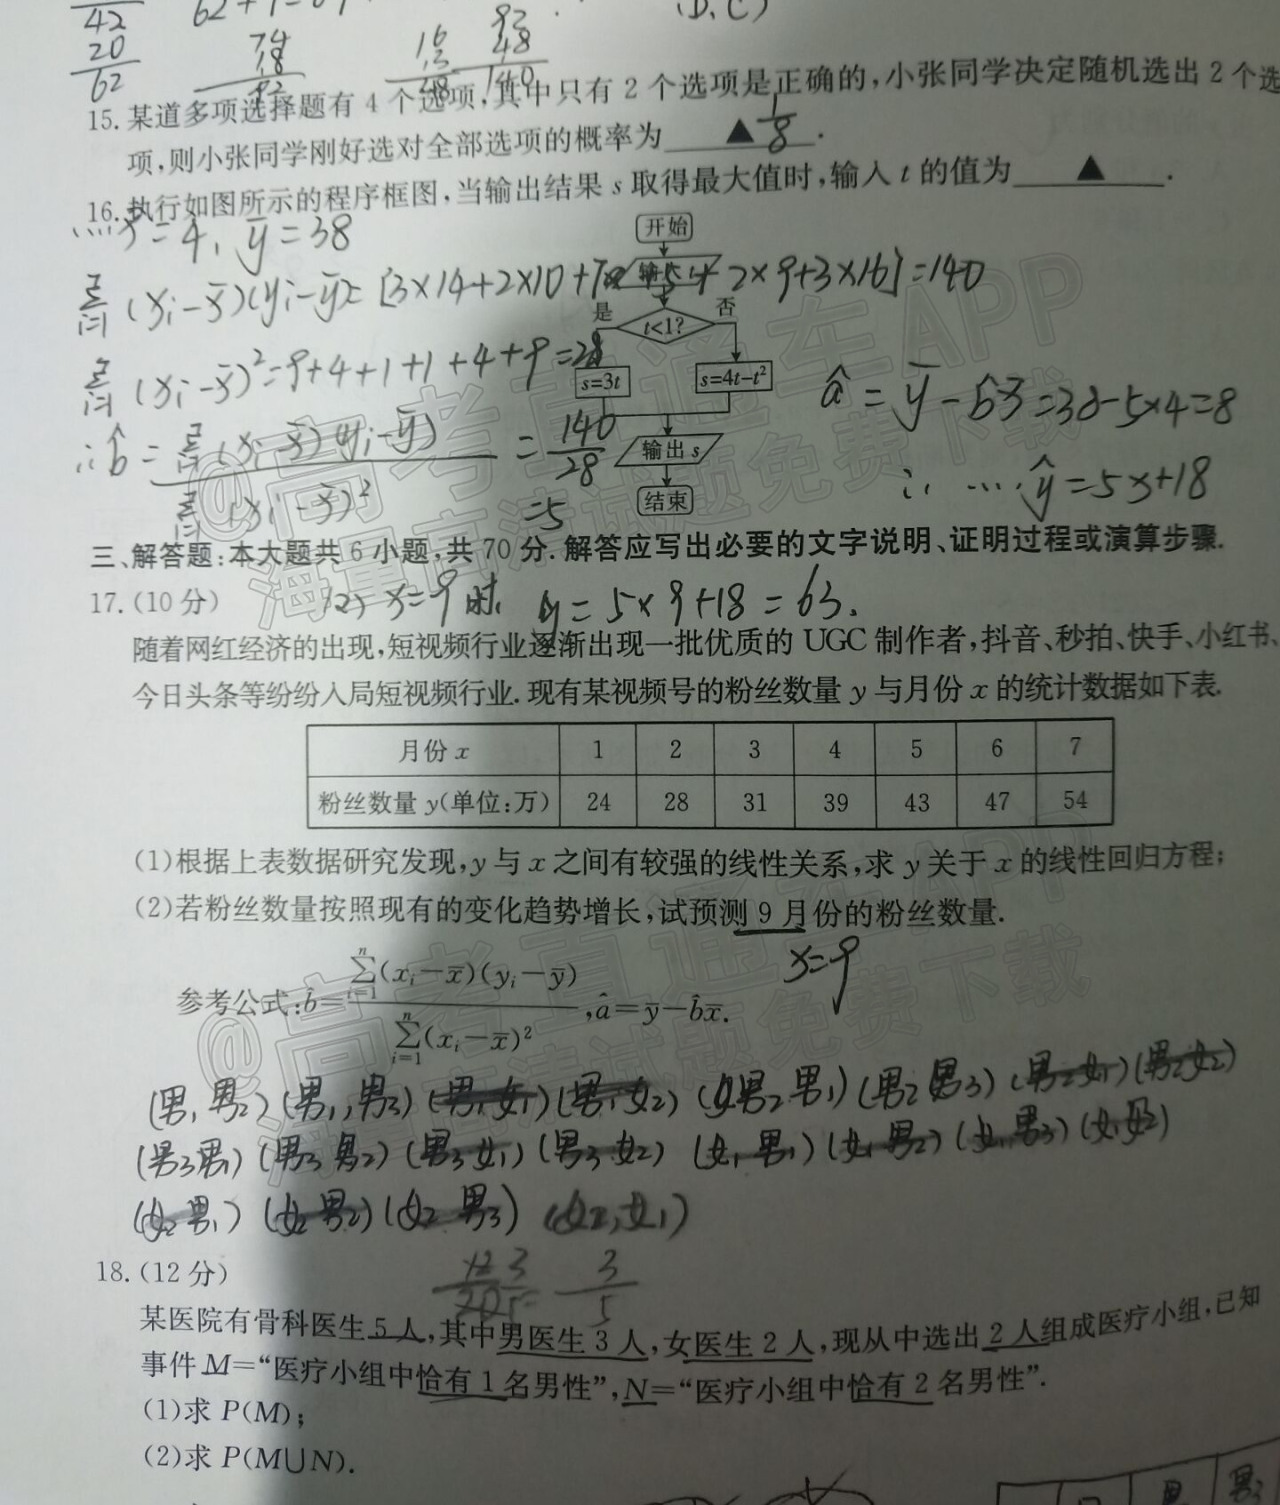 42
20
62
62+1=6
74
18
92
16
13
28
92
48
140
(D,C)
15. 某道多项选择题有 4 个选项,其中只有 2 个选项是正确的,小张同学决定随机选出 2 个选
项,则小张同学刚好选对全部选项的概率为 ▲ 1/8 .
16. 执行如图所示的程序框图,当输出结果 s 取得最大值时,输入 t 的值为 ▲ .
x̄=4, ȳ=38
开始
Σ(xi-x̄)(yi-ȳ)=[3×14+2×10+7+5+2×9+3×16]=140
是 否
t<1?
Σ(xi-x̄)²=9+4+1+1+4+9=28
s=3t s=4t-t²
â=ȳ-b̂x̄=38-5×4=8
∴b̂=Σ(xi-x̄)(yi-ȳ)/Σ(xi-x̄)²=140/28
=5
输出 s
∴ … ŷ=5x+18
结束
三、解答题:本大题共 6 小题,共 70 分.解答应写出必要的文字说明、证明过程或演算步骤.
17. (10 分)
(2) x=9时, y=5×9+18=63.
随着网红经济的出现,短视频行业逐渐出现一批优质的 UGC 制作者,抖音、秒拍、快手、小红书、
今日头条等纷纷入局短视频行业.现有某视频号的粉丝数量 y 与月份 x 的统计数据如下表.
月份 x 1 2 3 4 5 6 7
粉丝数量 y(单位:万) 24 28 31 39 43 47 54
(1)根据上表数据研究发现,y 与 x 之间有较强的线性关系,求 y 关于 x 的线性回归方程;
(2)若粉丝数量按照现有的变化趋势增长,试预测 9 月份的粉丝数量.
x=9
参考公式:b̂=Σ(i=1,n)(xi-x̄)(yi-ȳ)/Σ(i=1,n)(xi-x̄)²,â=ȳ-b̂x̄.
(男1男2)(男1,男3)(男1女1)(男1女2)(男2男1)(男2男3)(男2女1)(男2女2)
(男3男1)(男3男2)(男3女1)(男3女2)(女1男1)(女1男2)(女1男3)(女1女2)
(女2男1)(女2男2)(女2男3)(女2,女1)
12/20 3/5 = 3/5
18. (12 分)
某医院有骨科医生 5 人,其中男医生 3 人,女医生 2 人,现从中选出 2 人组成医疗小组,已知
事件 M=“医疗小组中恰有 1 名男性”,N=“医疗小组中恰有 2 名男性”.
(1)求 P(M);
(2)求 P(M∪N).
@高考直通车APP
海量高清试题免费下载
@高考直通车APP
海量高清试题免费下载